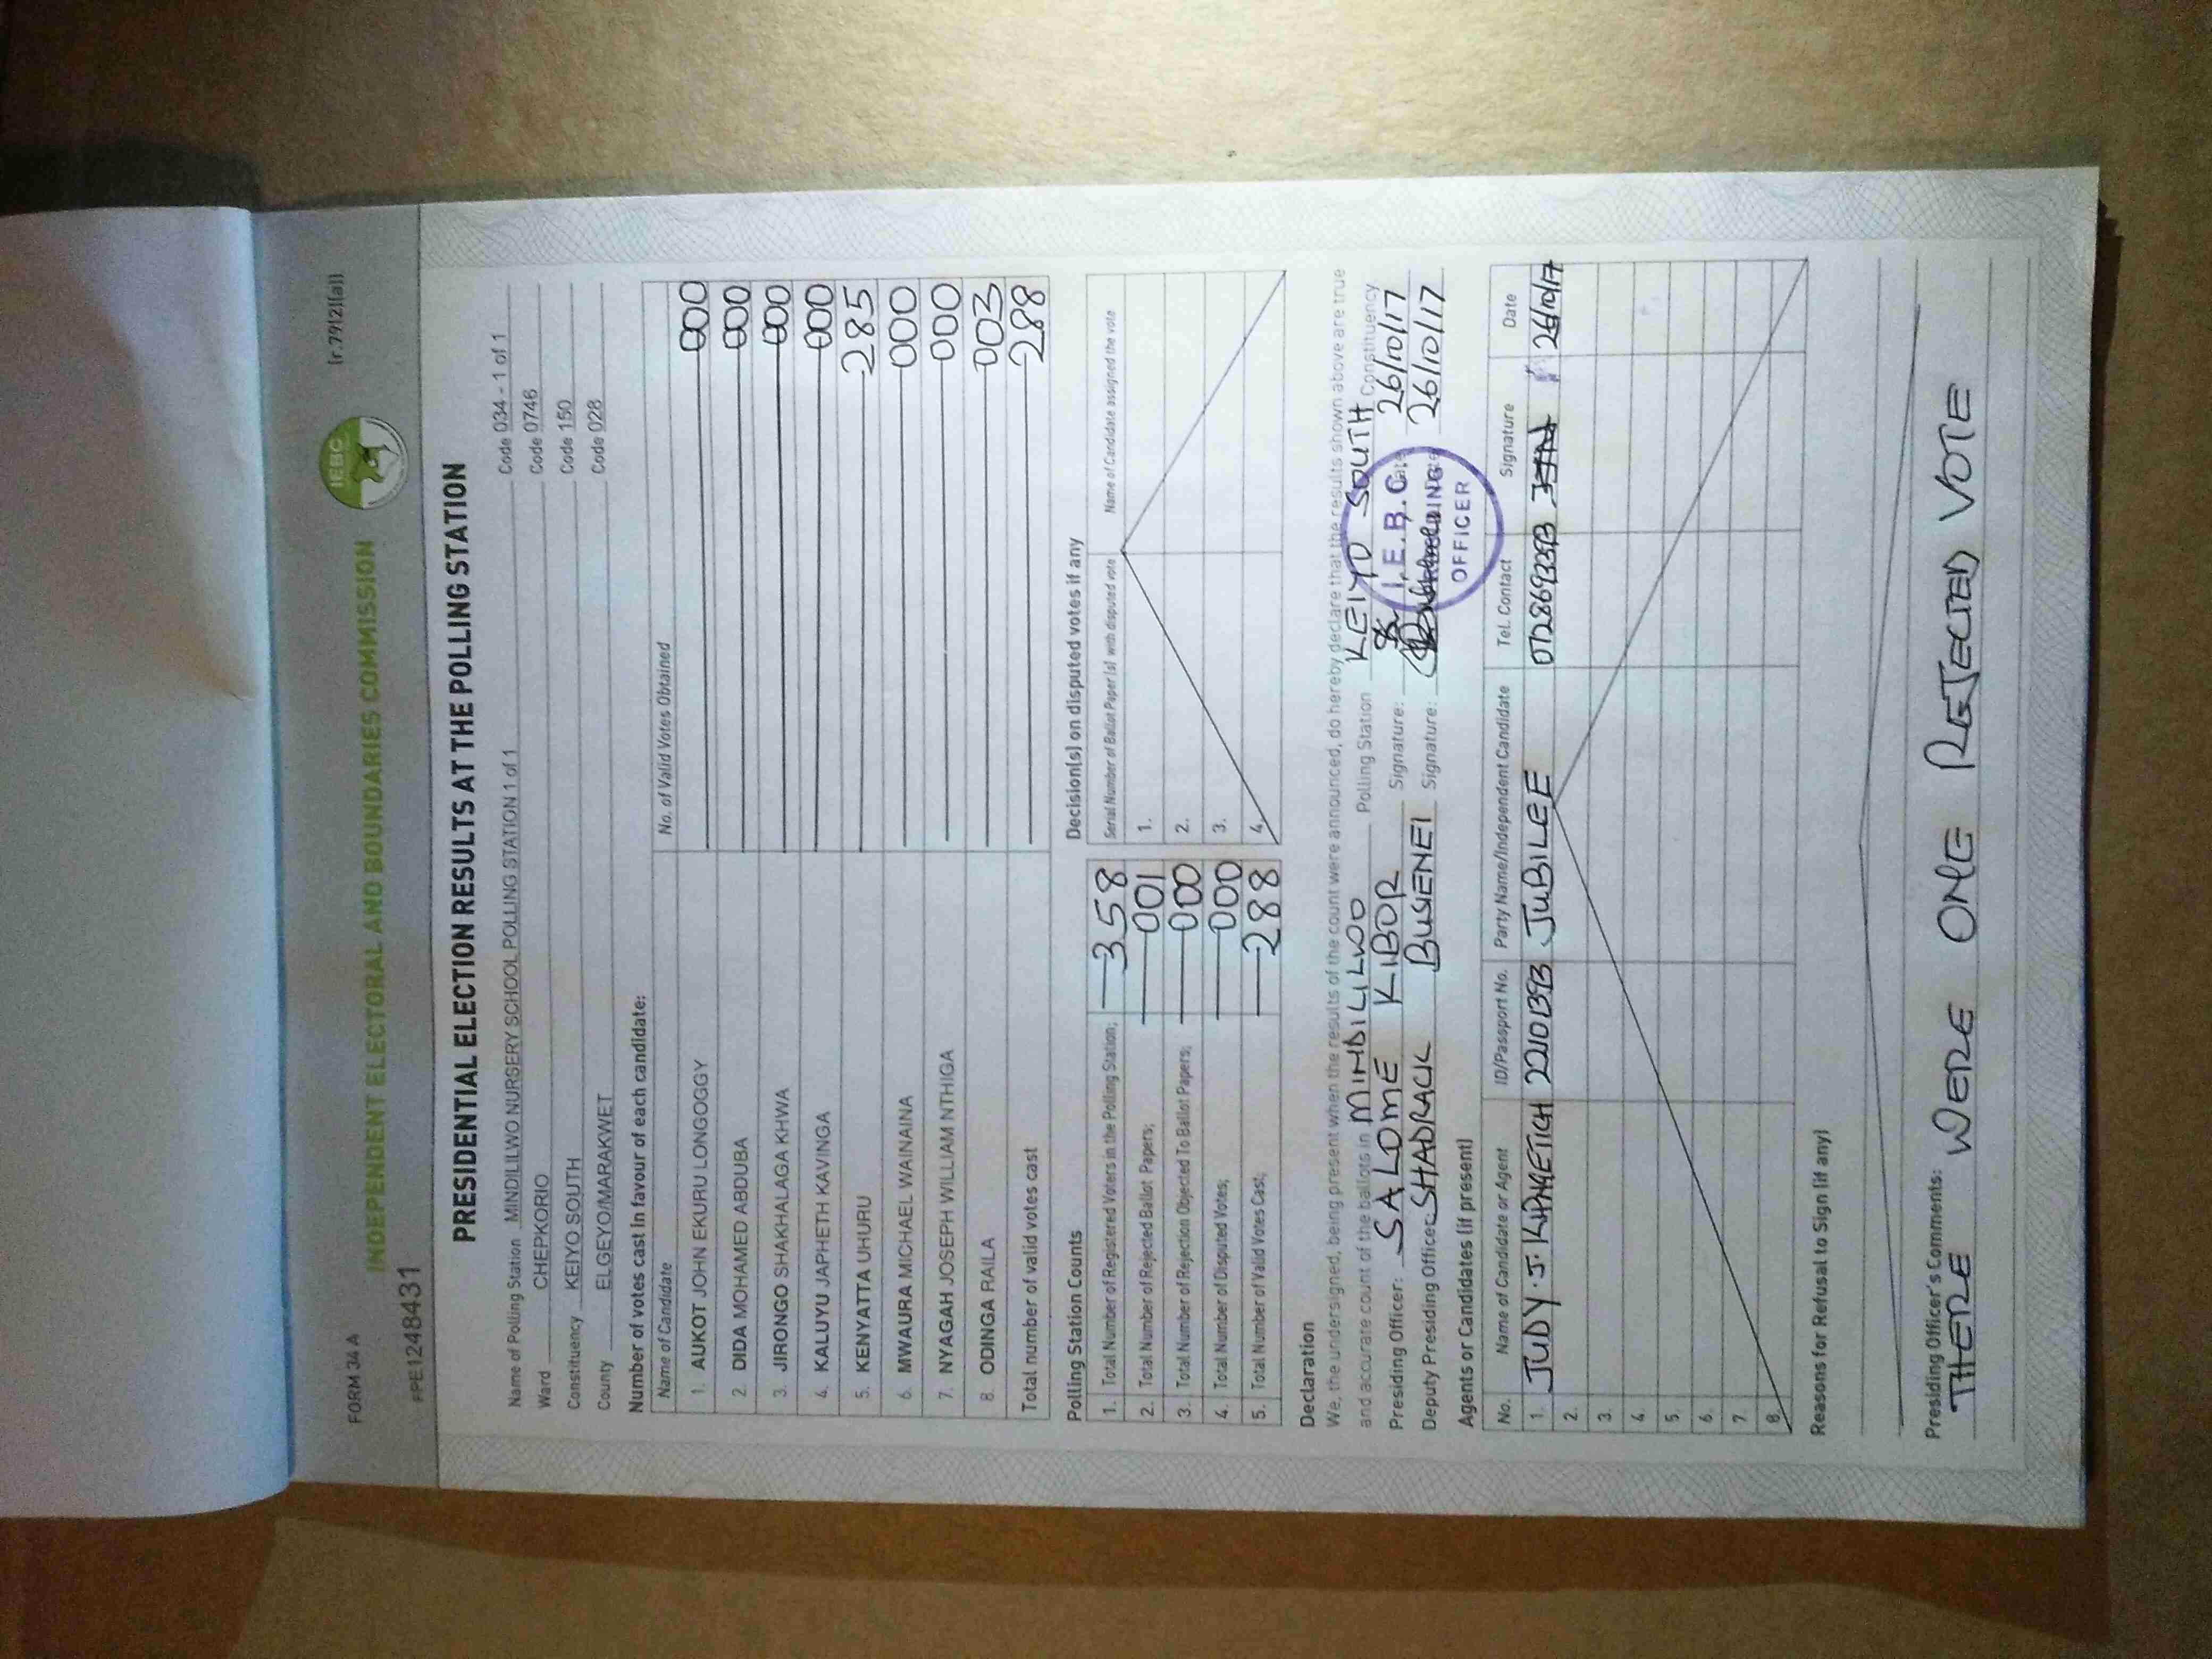 FORM 34 A
INDEPENDENT ELECTORAL AND BOUNDARIES COMMISSION
IEBC
(r.79(2)(a))
PRESIDENTIAL ELECTION RESULTS AT THE POLLING STATION
Name of Polling Station MINDILILWO NURSERY SCHOOL POLLING STATION 1 of 1 Code 034 - 1 of 1
Ward CHEPKORIO Code 0746
Constituency KEIYO SOUTH Code 150
County ELGEYO/MARAKWET Code 028
Number of votes cast in favour of each candidate:
Name of Candidate No. of Valid Votes Obtained
1. AUKOT JOHN EKURU LONGOGGY 000
2. DIDA MOHAMED ABDUBA 000
3. JIRONGO SHAKHALAGA KHWA 000
4. KALUYU JAPHETH KAVINGA 000
5. KENYATTA UHURU 285
6. MWAURA MICHAEL WAINAINA 000
7. NYAGAH JOSEPH WILLIAM NTHIGA 000
8. ODINGA RAILA 003
Total number of valid votes cast 288
Polling Station Counts
1. Total Number of Registered Voters in the Polling Station; 358
2. Total Number of Rejected Ballot Papers; 001
3. Total Number of Rejection Objected To Ballot Papers; 000
4. Total Number of Disputed Votes; 000
5. Total Number of Valid Votes Cast; 288
Decision(s) on disputed votes if any
Serial Number of Ballot Paper(s) with disputed vote Name of Candidate assigned the vote
1.
2.
3.
4.
Declaration
We, the undersigned, being present when the results of the count were announced, do hereby declare that the results shown above are true
and accurate count of the ballots in MINDILILWOO Polling Station KEIYO SOUTH Constituency
Presiding Officer: SALOME KIBOR Signature: 26/10/17
Deputy Presiding Officer: SHADRACK BUSIENEI Signature: 26/10/17
I.E.B.C
PRESIDING
OFFICER
Agents or Candidates (if present)
No. Name of Candidate or Agent ID/Passport No. Party Name/Independent Candidate Tel. Contact Signature Date
1. JUDY. J. 22101393 JUBILEE 26/10/17
2.
3.
4.
5.
6.
7.
8.
Reasons for Refusal to Sign (if any)
Presiding Officer's Comments:
THERE WERE ONE REJECTED VOTE